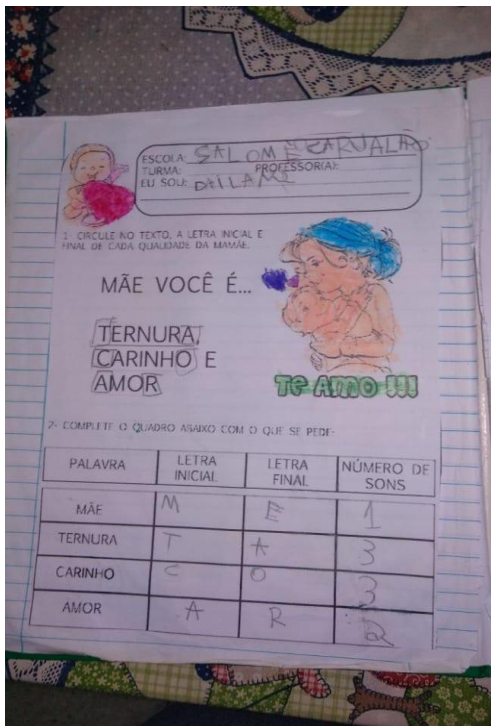 ESCOLA: SALOMÉ CARVALHO
TURMA: PROFESSOR(A):
EU SOU: DAILANE
1- CIRCULE NO TEXTO, A LETRA INICIAL E
FINAL DE CADA QUALIDADE DA MAMÃE.
MÃE VOCÊ É...
TERNURA,
CARINHO E
AMOR
Te AMO !!!
2- COMPLETE O QUADRO ABAIXO COM O QUE SE PEDE:
PALAVRA LETRA INICIAL LETRA FINAL NÚMERO DE SONS
MÃE M E 1
TERNURA T A 3
CARINHO C O 3
AMOR A R 2